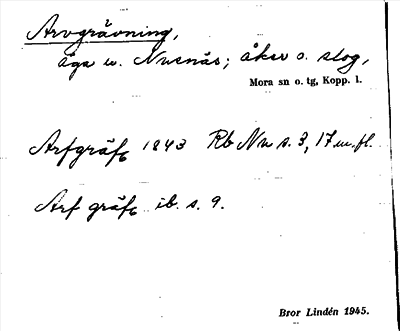 Arvgrävning,
äga u. Nusnäs; åker o. slog,
Mora sn o. tg, Kopp. l.
Arfgräfs 1843 Rb Nn s. 3, 17 m.fl.
Arf gräfs ib. s. 9.
Bror Lindén 1945.